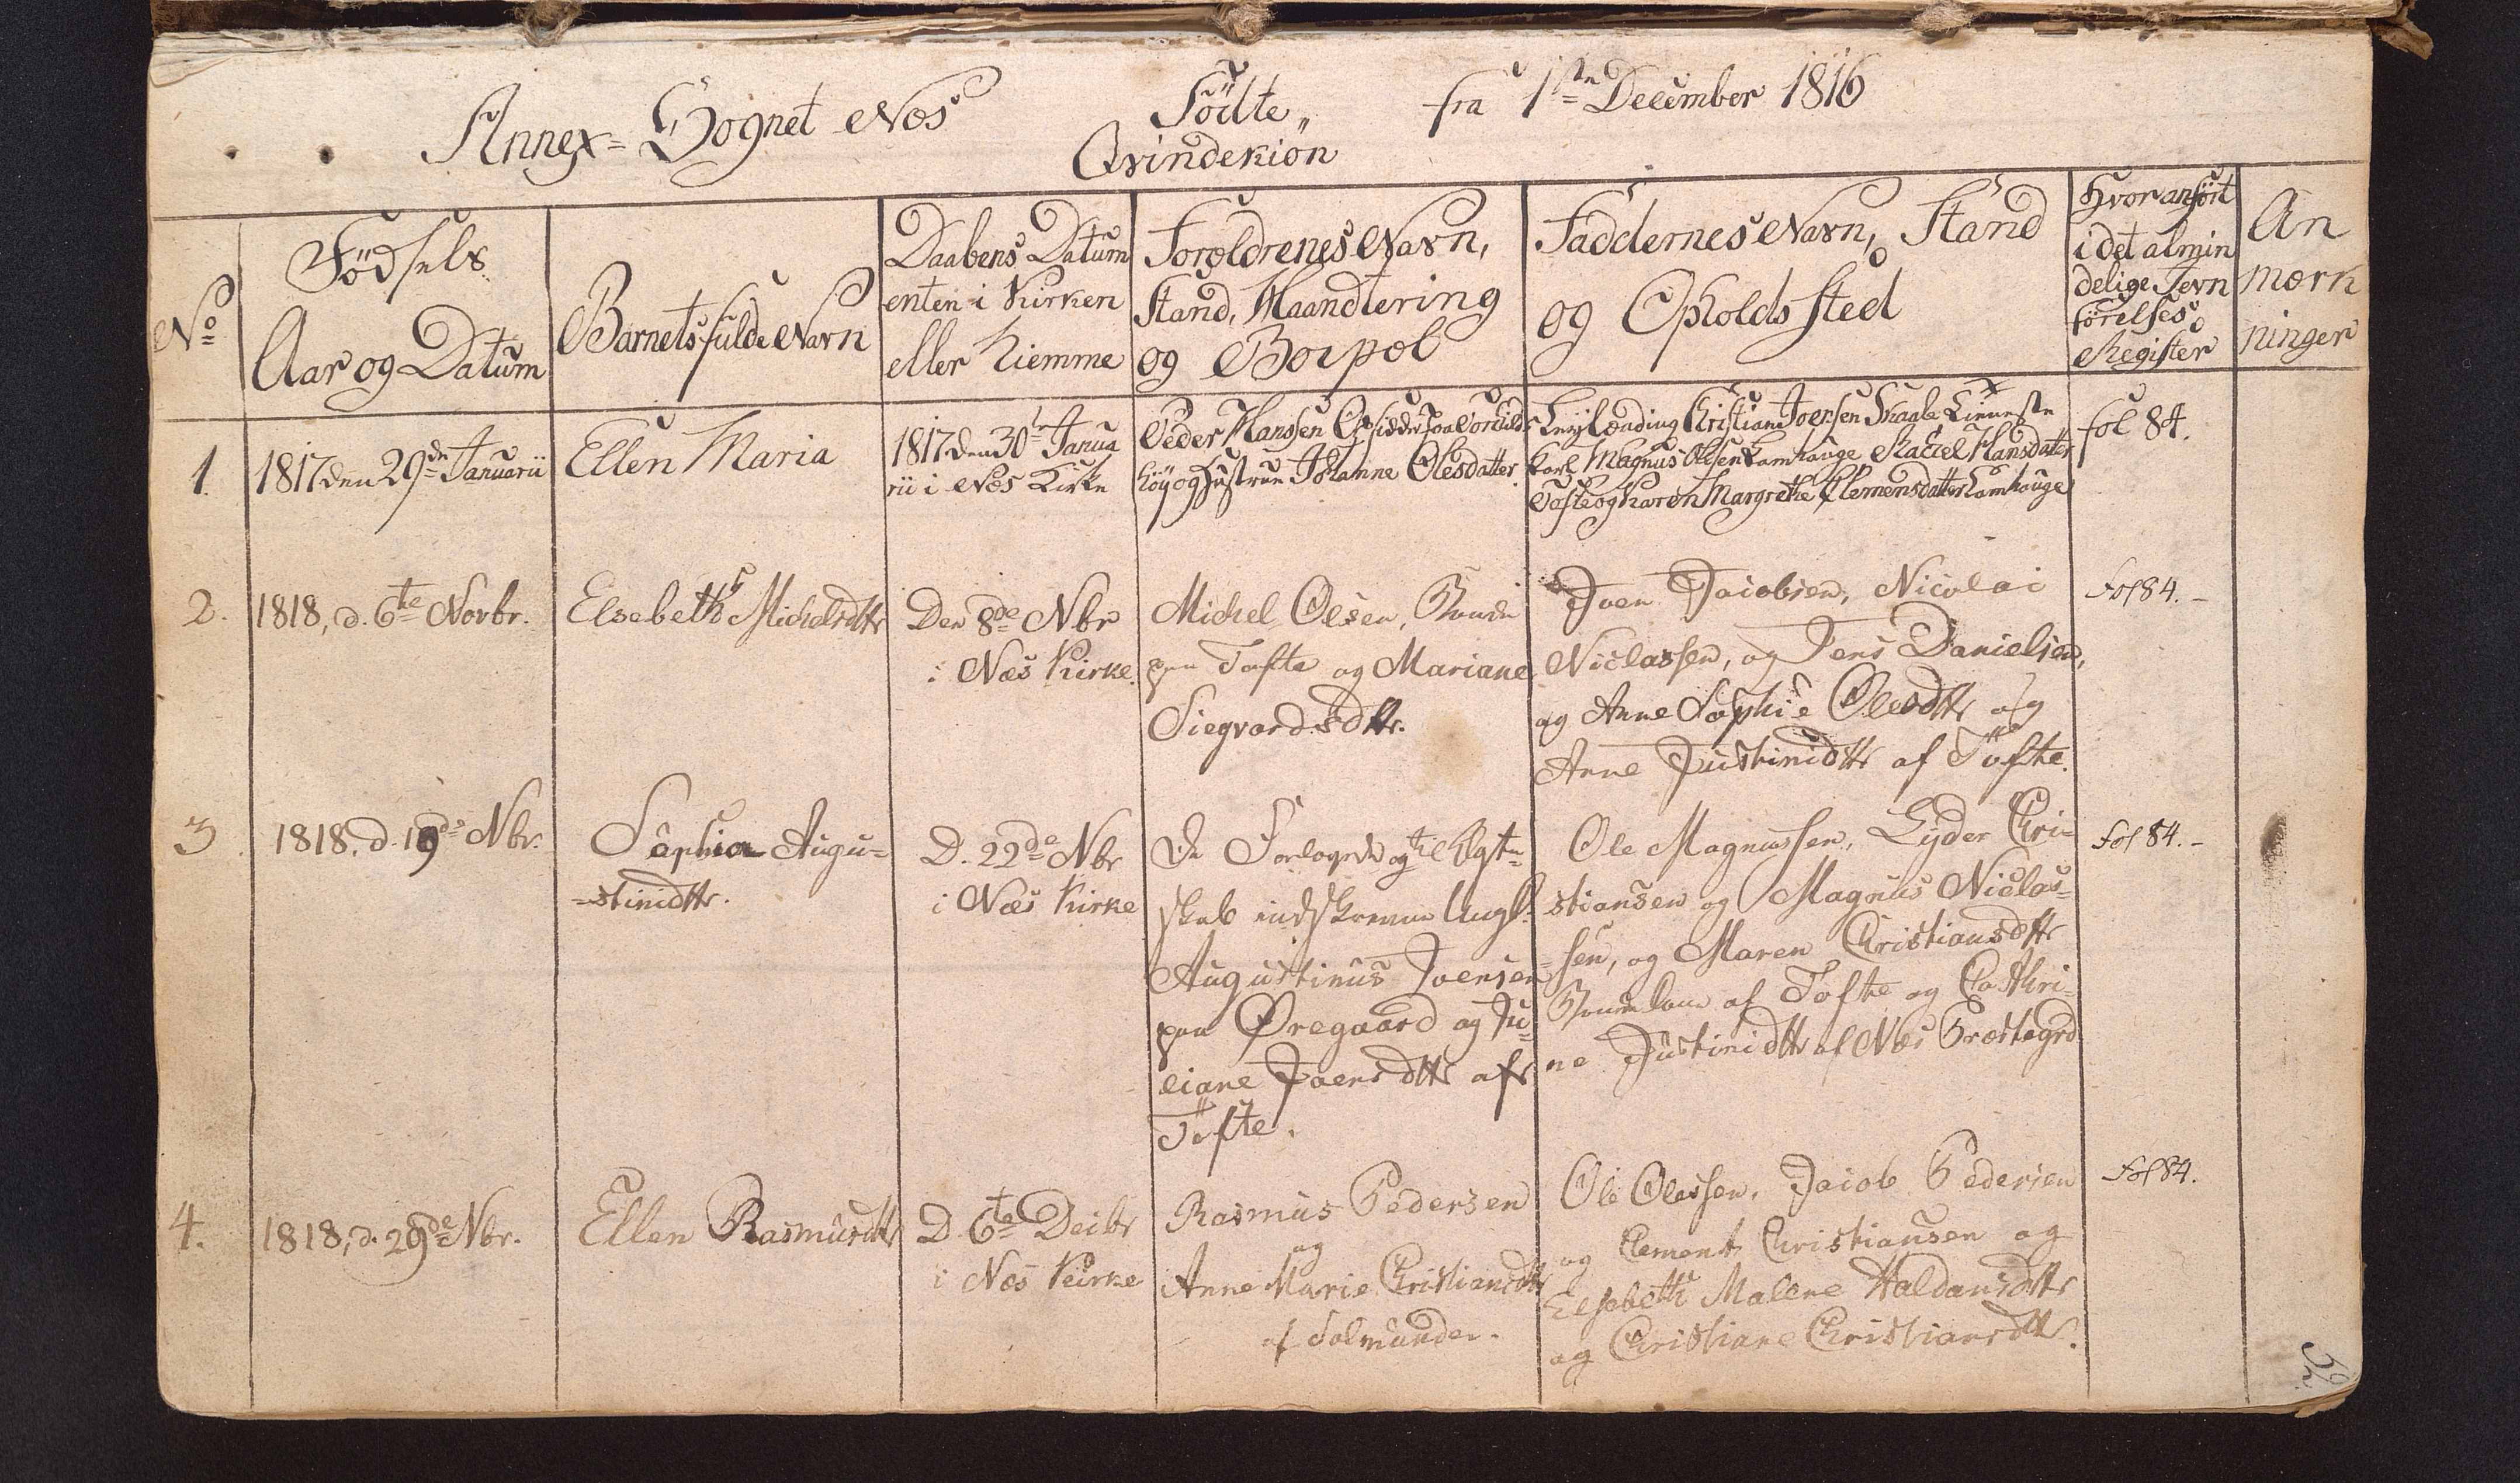 Annex-Sognet Næs
Födte
Qvindekiön
fra 1ste December 1816
No
Födsels
Aar og Datum
Barnets fulde Navn
Daabens Datum
enten i Kirken
eller hiemme
Forældrenes Navn,
Stand, Haandtering
og Boepæl
Faddernes Navn, Stand
og Opholds Sted
Hvor anført
i det almin
delige Jevn
førelses
Register
An
mærk
ninger
1.
1817 den 29de Januarii
Ellen Maria
1817 den 30te Janua
rii i Næs Kirke
Peder Hanssen Opsidder paa
höy og Hustrue Johanne Olesdatter
Leylænding Christian Joensen Skaale
Karl Magnus Olesen Lamhauge Rachel Hansdatter
Tofte og Karen Margrethe Clemensdatter Lamhauge
fol 84.
2.
1818, d. 6te Novbr.
Elsebeth Michelsdttr
Den 8de Nbr
i Næs Kirke.
Michel Olsen, Bonde
paa Tofte og Mariane
Siegvardsdttr.
Joen Jacobsen, Nicolai
Niclassen, og Jens Danielsen,
og Anne Sophie Olesdttr og
Anne Justinidttr af Tofte.
Fol 84.-
3
1818, d. 19de Nbr.
Sophia Augu=
=stinidttr.
D. 22de Nbr
i Næs Kirke
De Forlovede og til Ægte=
skab indskrevne Ungf.
Augustinus Joensen
paa Øregaard og Ju=
liane Joensdttr af
Tofte.
Ole Magnussen, Lyder Chri=
stiansen og Magnus Niclas=
sen, og Maren Christiansdttr
af Tofte og Cathri=
ne Justinidttr af Næs Præstegrd
Fol 84.-
4.
1818, d. 29de Nbr.
Ellen Rasmusdttr
D. 6te Decbr
i Næs Kirke
Rasmus Pedersen
og
Anne Marie Christiansdttr
af Solmunder.
Ole Olessen, Jacob Pedersen
og Clement Christiansen og
Elsebeth Malene Haldansdttr
og Christiane Christiansdttr.
Fol 84.
52.